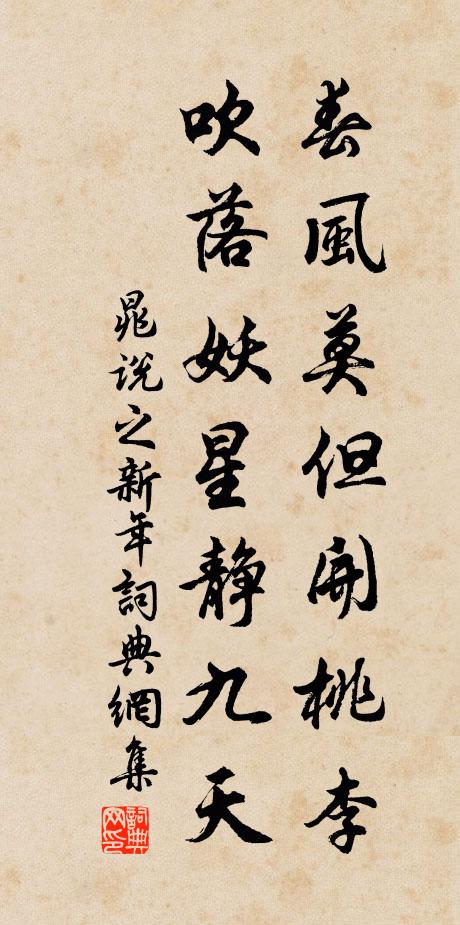 春風莫但開桃李
吹落妖星静九天
晁說之新年詞典網集
詞典網印